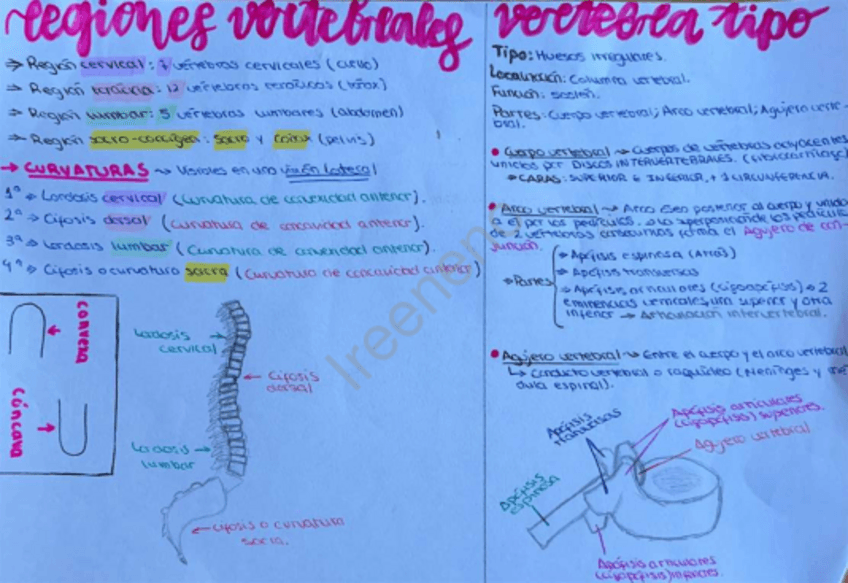 regiones vertebrales
→ Región cervical: 7 vértebras cervicales (cuello)
→ Región torácica: 12 vértebras torácicas (tórax)
→ Región lumbar: 5 vértebras lumbares (abdomen)
→ Región sacro-coccígea: sacro y coxis (pelvis)
→ CURVATURAS → Visibles en una visión lateral
1ª → Lordosis cervical (curvatura de convexidad anterior).
2ª → Cifosis dorsal (curvatura de concavidad anterior).
3ª → Lordosis lumbar (curvatura de convexidad anterior).
4ª → Cifosis o curvatura sacra (curvatura de concavidad anterior)
convexa
cóncava
Lordosis
cervical
Cifosis
dorsal
Lordosis
lumbar
cifosis o curvatura
sacra.
vertebra tipo
Tipo: Huesos irregulares.
Localización: Columna vertebral.
Función: sostén.
Partes: Cuerpo vertebral; Arco vertebral; Agujero verte-
bral.
• Cuerpo vertebral → Cuerpos de vértebras adyacentes
unidos por DISCOS INTERVERTEBRALES. (fibrocartílago)
→ CARAS: SUPERIOR E INFERIOR, + 1 CIRCUNFERENCIA.
• Arco vertebral → Arco óseo posterior al cuerpo y unido
a él por los pedículos. La superposición de los pedículos
de 2 vértebras consecutivas forma el Agujero de con-
junción.
→ Partes
→ Apófisis espinosa (Atrás)
→ Apófisis transversas
→ Apófisis articulares (cigoapófisis) → 2
eminencias verticales, una superior y otra
inferior → Articulación intervertebral.
• Agujero vertebral → Entre el cuerpo y el arco vertebral
↳ Conducto vertebral o raquídeo (Meninges y mé-
dula espinal).
Apófisis
transversas
Apófisis articulares
(cigoapófisis) superiores.
Agujero vertebral
Apófisis
espinosa
Apófisis articulares
(cigoapófisis) inferiores.